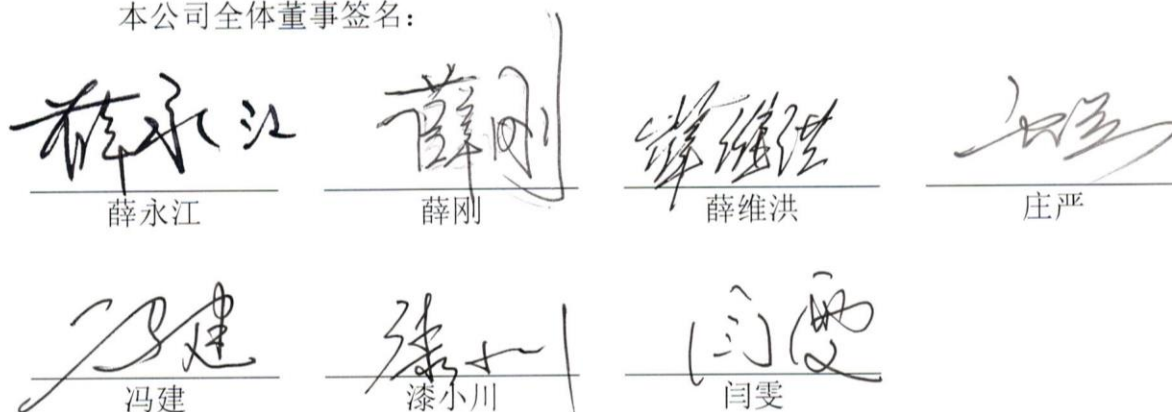 本公司全体董事签名：
薛永江 薛刚 薛维洪 庄严
薛永江 薛刚 薛维洪 庄严
冯建 漆小川 闫雯
冯建 漆小川 闫雯